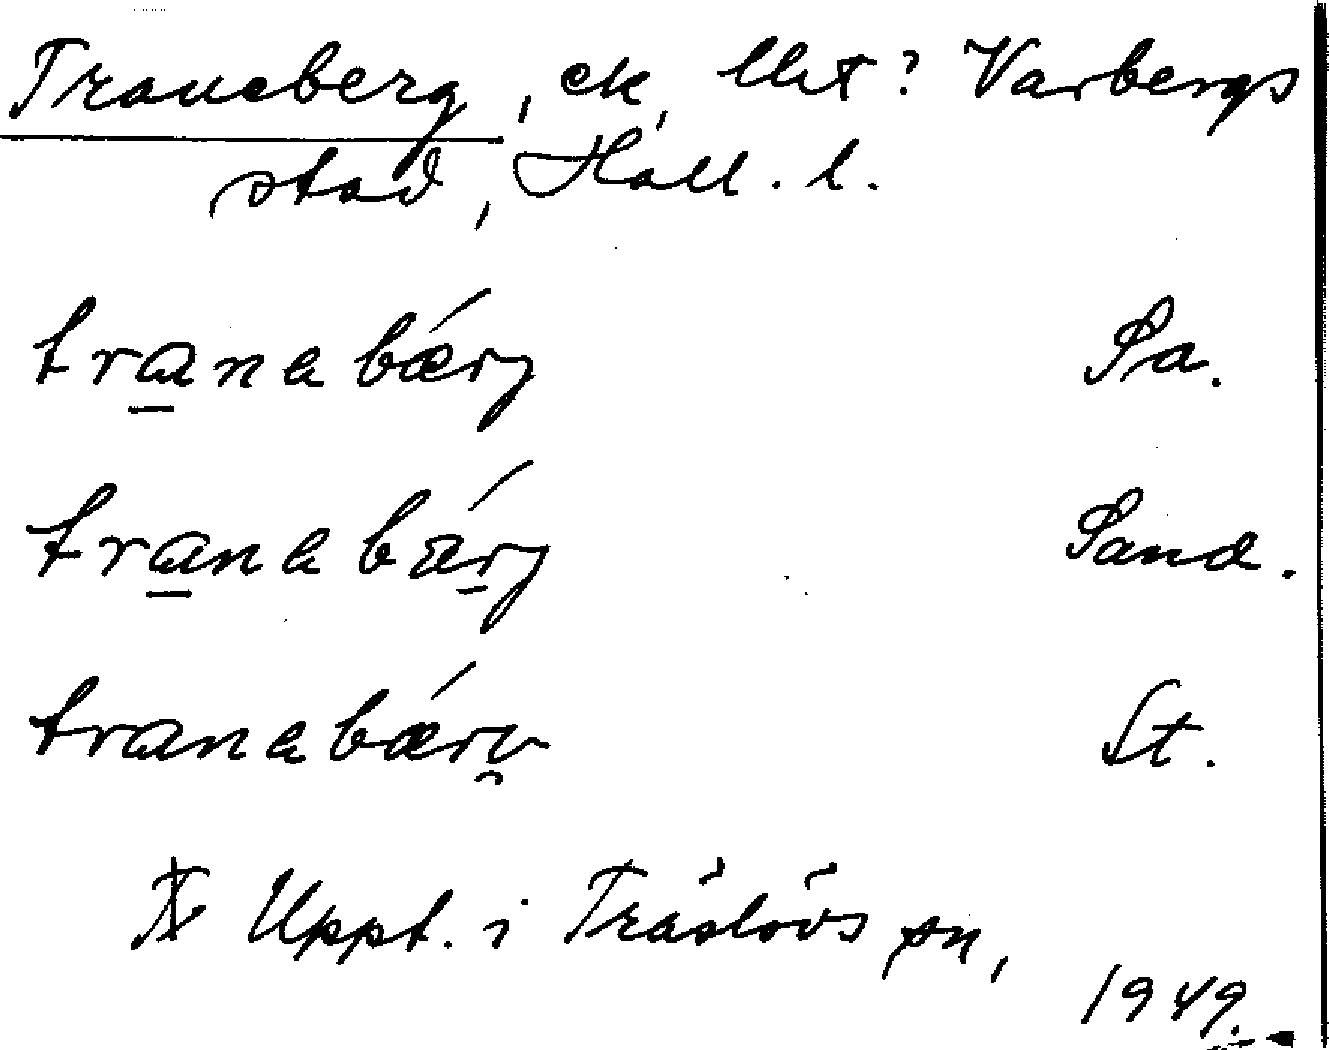 Traneberg, ek, lht? Varbergs
stad, Hall. l.
tranabǽrj Sa.
tranabǽrj Sand.
tranabǽrv St.
Uppt. i Träslövs sn,
1949.